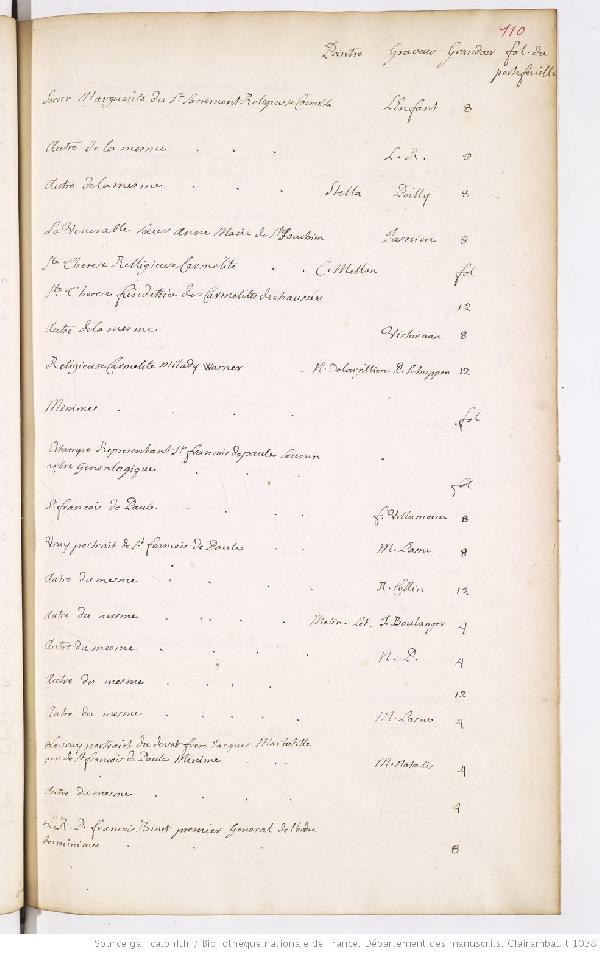 110
Peintre Graveur Grandeur fol. du
portefeuille
Soeur Marguerite du St. Sacrement Religieuse Carmelite L'Enfant 8
Autre de la mesme L. R. 8
Autre de la mesme Stella Poilly 8
La Venerable Soeur Anne Marie de St. Joachim 8
Ste. Therese Religieuse Carmelite C. Mellan fol
Ste. Therese fondatrice des Carmelites dechaussées 12
Autre de la mesme 8
Religieuse Carmelite Milady Warner N. Delargilliere P. Schuppen 12
Minimes fol
Estampe Representant St. francois de paule sous un
arbre Genealogique fol
St. francois de Paule f. Villamena 8
Vray portrait de St. francois de Paule M. Lasne 8
Autre du mesme R. Collin 12
Autre du mesme J. Boulanger 4
Autre du mesme N. P. 4
Autre du mesme 12
Autre du mesme M. Lasne 4
Le vray portraict du devot frere Jacques Martotille
pere de St. francois de Paule Minime M. Natalis 4
Autre du mesme 4
L. R. P. francois Binet premier General de l'ordre
des minimes 8
Source gallica.bnf.fr / Bibliothèque nationale de France. Département des manuscrits. Clairambault 1038